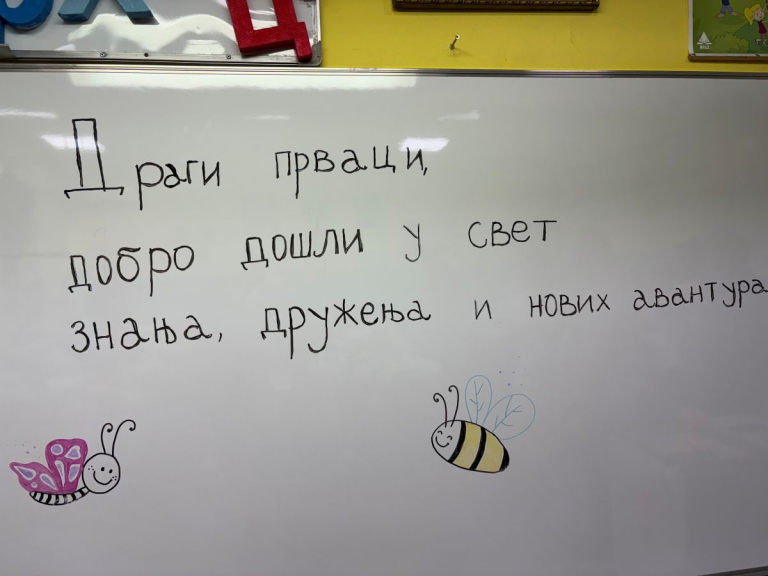 Драги прваци,
добро дошли у свет
знања, дружења и нових авантура